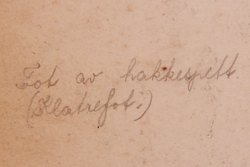 Fot av hakkespett
(Klatrefot.)